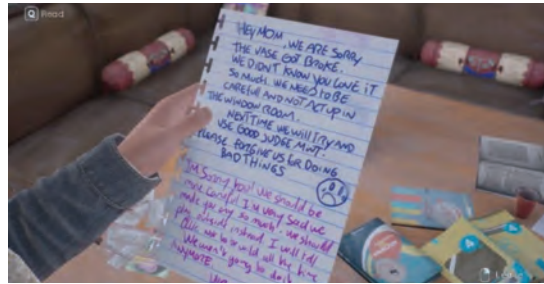 Q
HEY MOM, WE ARE SORRY
THE VASE GOT BROKE.
WE DIDN'T KNOW YOU LOVE IT
SO MUCH. WE NEED TO BE
CAREFUL AND NOT ACT UP IN
THE WINDOW ROOM.
NEXT TIME WE WILL TRY AND
USE GOOD JUDGE MINT.
PLEASE FORGIVE US FOR DOING
BAD THINGS
I'm sorry too! We should be
more careful. I'm very sad we
made you cry so much. We should
play outside instead. I will tell
we are wild all the time
We aren't going to do it
Anymore.